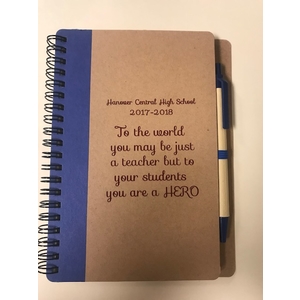 Hanover Central High School
2017-2018
To the world
you may be just
a teacher but to
your students
you are a HERO